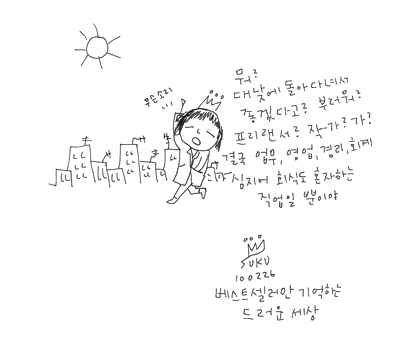 무슨소리
뭐!
대낮에 돌아다녀서
좋겠다고! 부러워!
프리랜서! 작가!가!
결국 업무, 영업, 경리, 회계
심지어 회식도 혼자하는
직업일 뿐이야
SUKU
100226
베스트셀러만 기억하는
드러운 세상